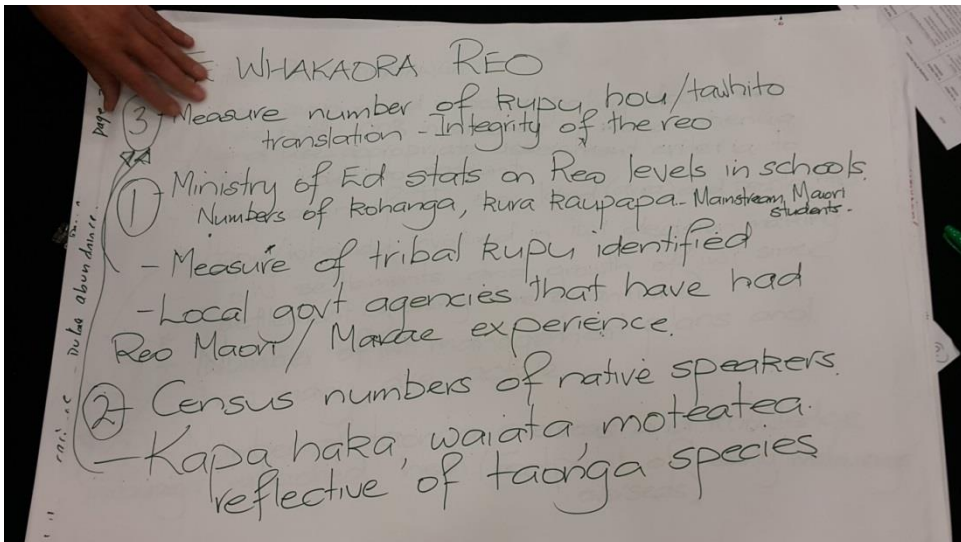 E WHAKAORA REO
3 - Measure number of kupu hou/tawhito
translation - Integrity of the reo
1 - Ministry of Ed stats on Reo levels in schools.
Numbers of kohanga, kura kaupapa - Mainstream, Maori
students.
- Measure of tribal kupu identified
- Local govt agencies that have had
Reo Maori / Marae experience.
2 - Census numbers of native speakers.
- Kapa haka, waiata, moteatea.
reflective of taonga species
page
abundance